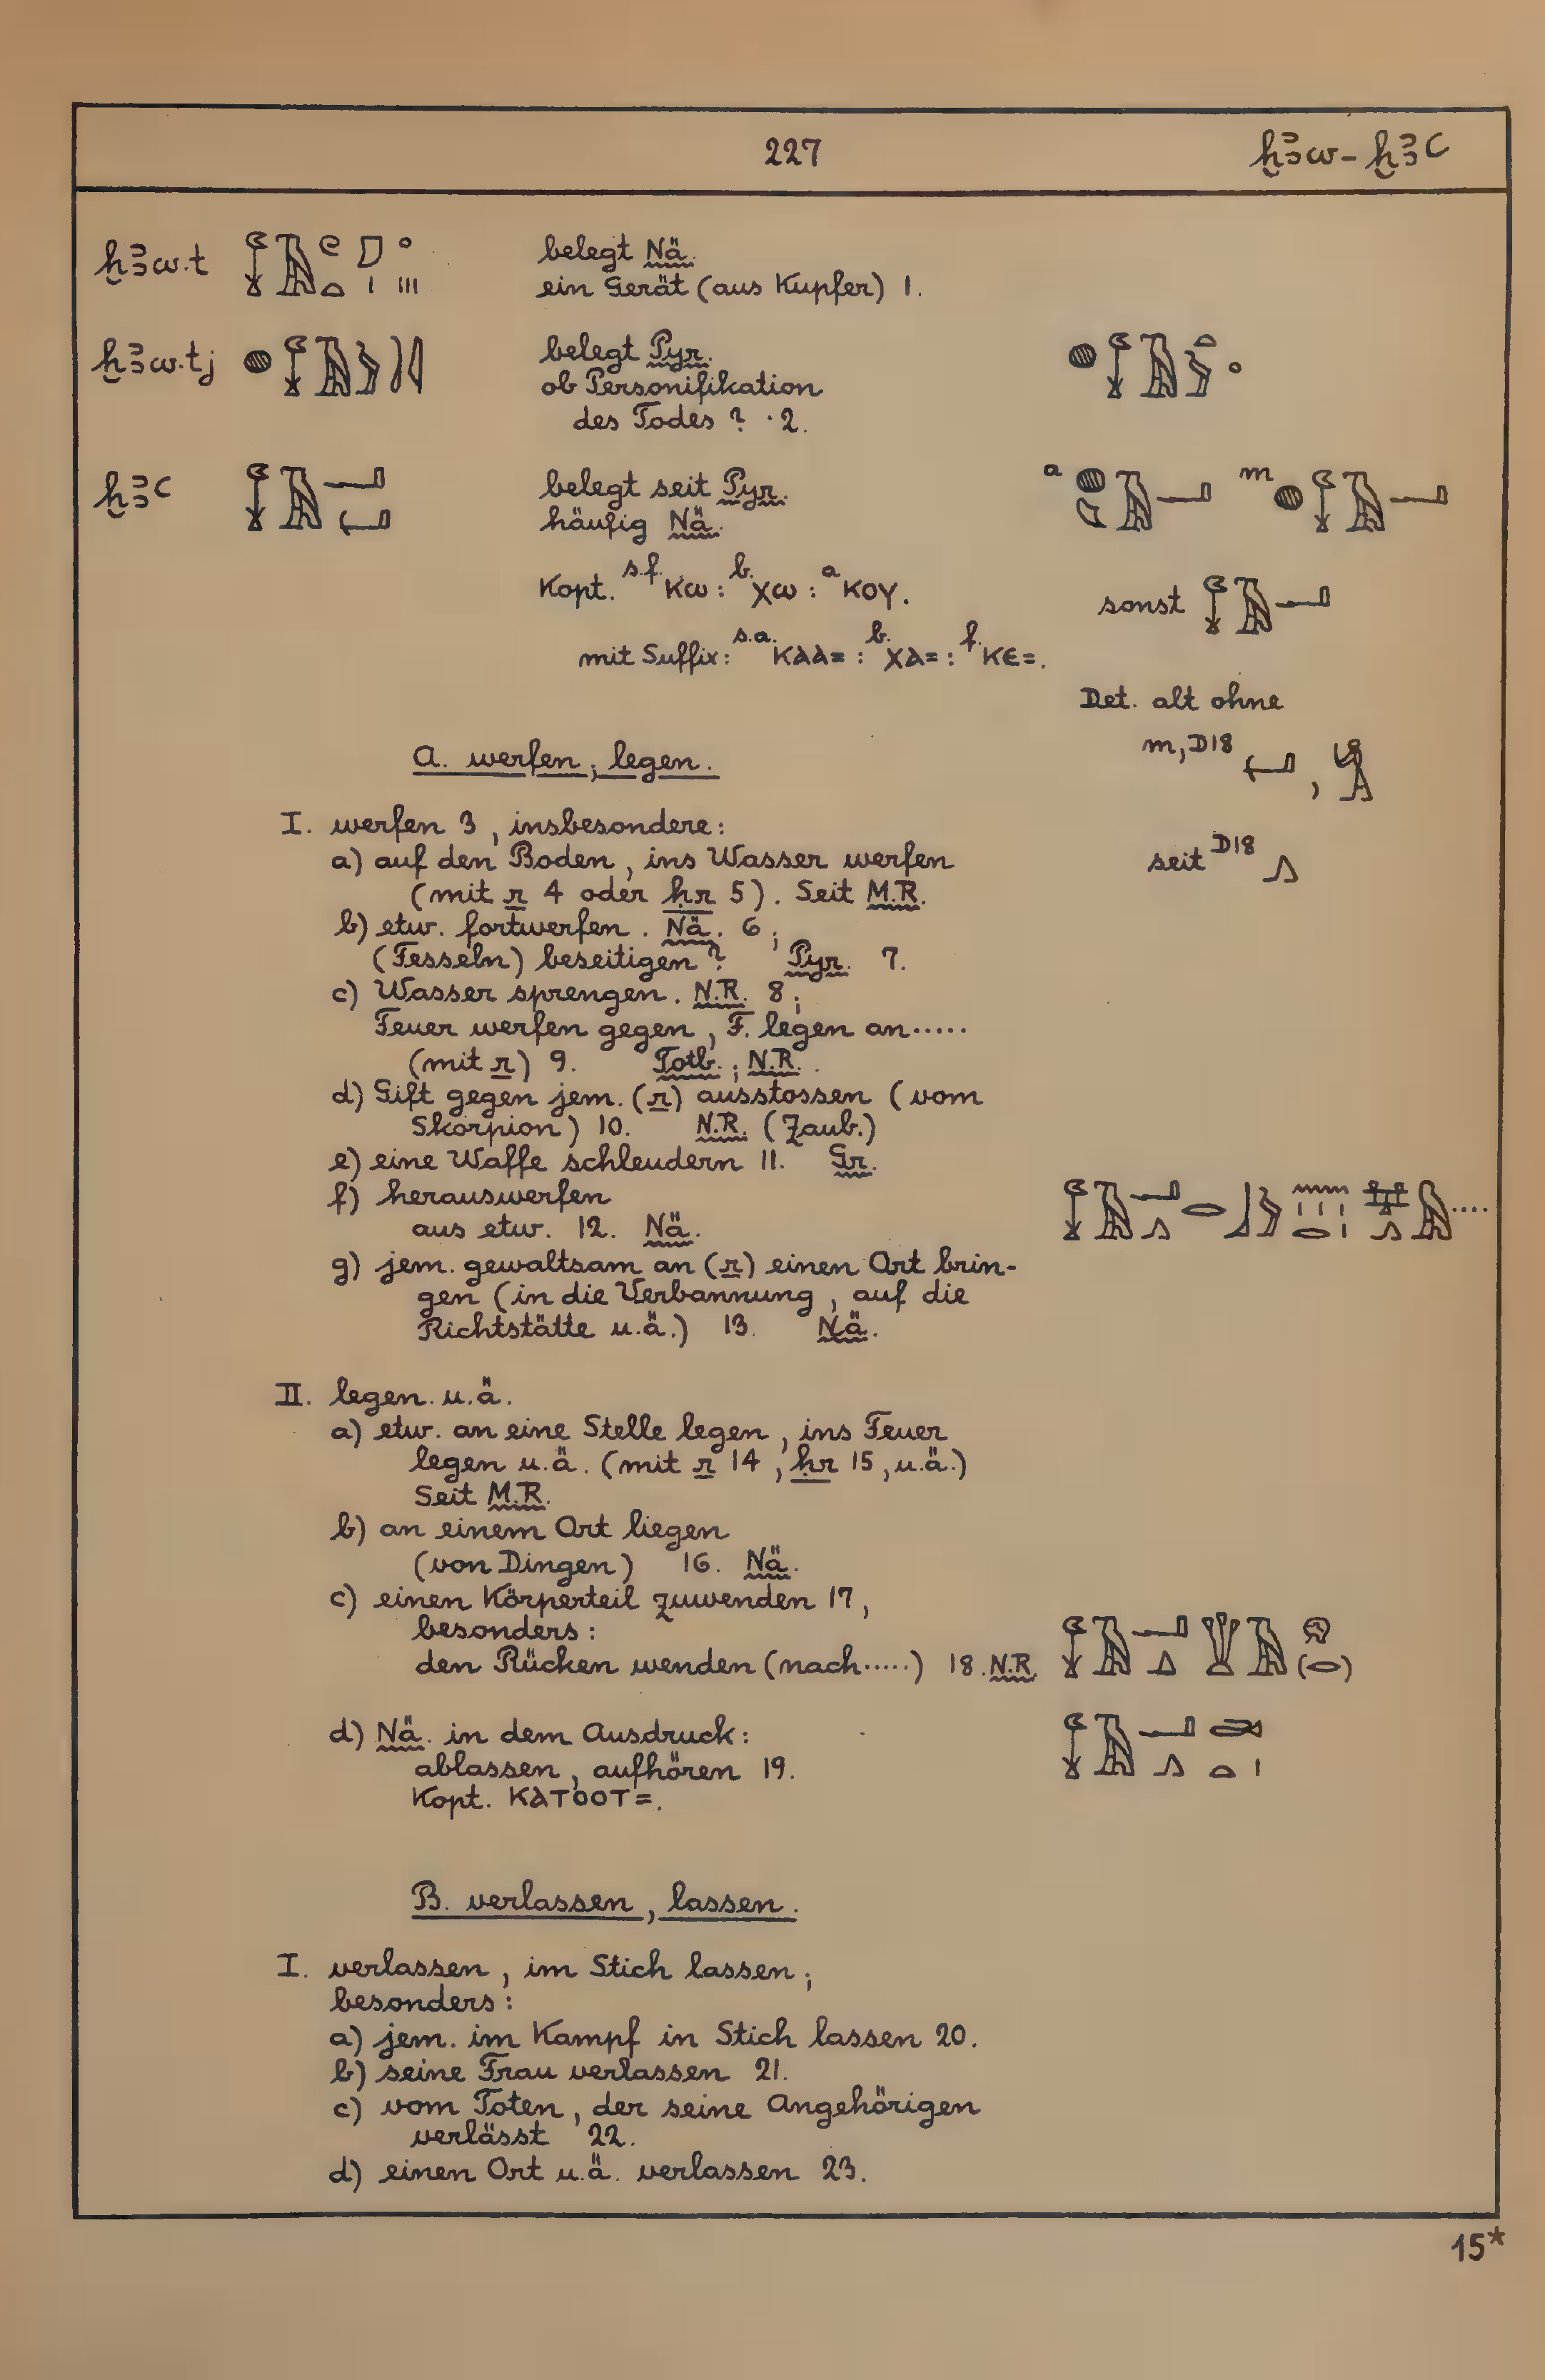 227
ḫꜣw - ḫꜣꜥ
ḫꜣw.t
belegt Nä.
ein Gerät (aus Kupfer) 1.
ḫꜣw.tj
belegt Pyr.
ob Personifikation
des Todes ? 2.
ḫꜣꜥ
belegt seit Pyr.
a m
häufig Nä.
Kopt. s.f. ⲕⲱ : b. ⲭⲱ : a ⲕⲟⲩ.
sonst
mit Suffix: s.a. ⲕⲁⲁ= : b. ⲭⲁ= : f. ⲕⲉ=.
Det. alt ohne
m, D18 ,
seit D18
A. werfen; legen.
I. werfen 3, insbesondere:
a) auf den Boden, ins Wasser werfen
(mit r 4 oder ḥr 5). Seit M.R.
b) etw. fortwerfen. Nä. 6;
(Fesseln) beseitigen? Pyr. 7.
c) Wasser sprengen. N.R. 8;
Feuer werfen gegen, F. legen an.....
(mit r) 9. Totb.; N.R.
d) Gift gegen jem. (r) ausstossen (vom
Skorpion) 10. N.R. (Zaub.)
e) eine Waffe schleudern 11. Gr.
f) herauswerfen
aus etw. 12. Nä.
....
g) jem. gewaltsam an (r) einen Ort brin-
gen (in die Verbannung, auf die
Richtstätte u.ä.) 13. Nä.
II. legen u.ä.
a) etw. an eine Stelle legen, ins Feuer
legen u.ä. (mit r 14, ḥr 15, u.ä.)
Seit M.R.
b) an einem Ort liegen
(von Dingen) 16. Nä.
c) einen Körperteil zuwenden 17,
besonders:
den Rücken wenden (nach.....) 18. N.R.
d) Nä. in dem Ausdruck:
ablassen, aufhören 19.
Kopt. ⲕⲁⲧⲟⲟⲧ=.
B. verlassen, lassen.
I. verlassen, im Stich lassen;
besonders:
a) jem. im Kampf in Stich lassen 20.
b) seine Frau verlassen 21.
c) vom Toten, der seine Angehörigen
verlässt 22.
d) einen Ort u.ä. verlassen 23.
15*